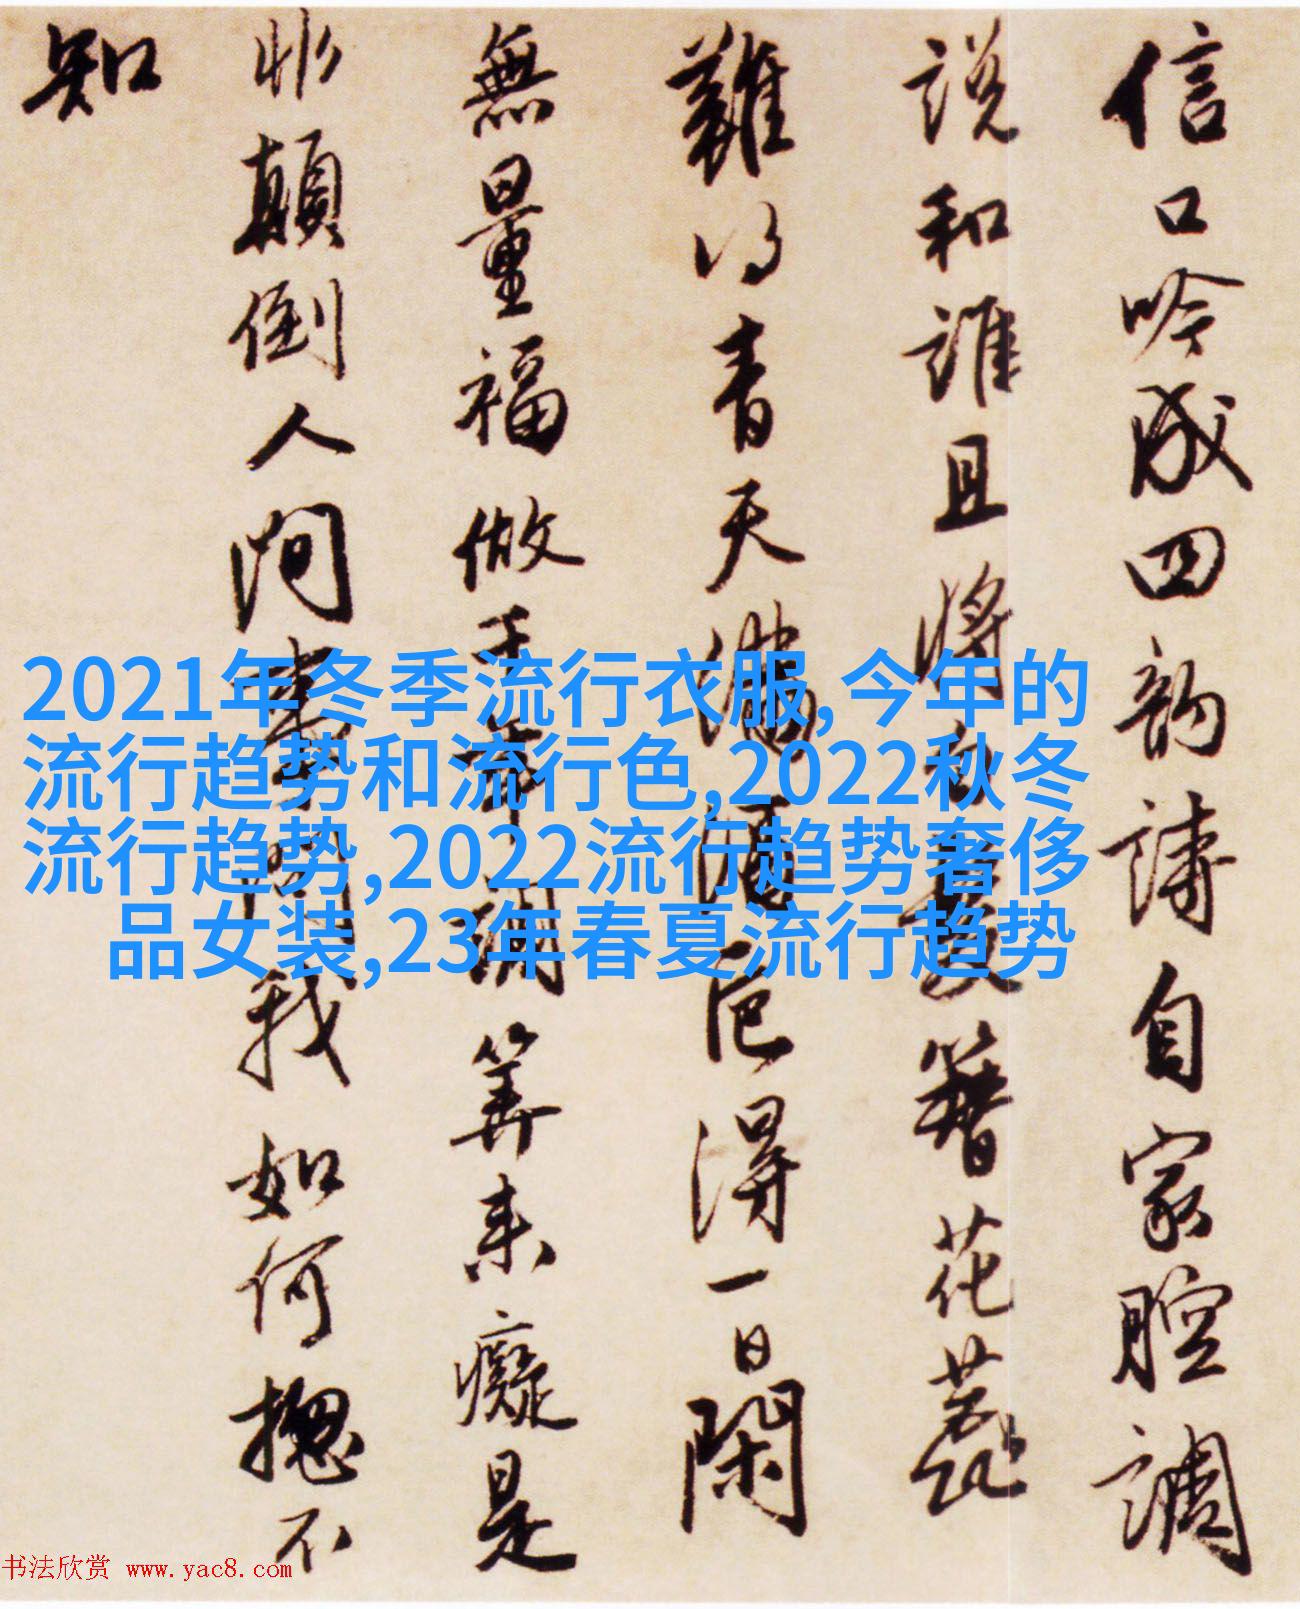 信口吟成四韵诗自家腔調
説和誰且將白髮簪花蕊
難得青天滿酒卮得一日閑
無量福做千年調算来癡是
非顛倒人间事問我如何揔不
知
2021年冬季流行衣服,今年的
流行趋势和流行色,2022秋冬
流行趋势,2022流行趋势奢侈
品女装,23年春夏流行趋势
书法欣赏 www.yac8.com